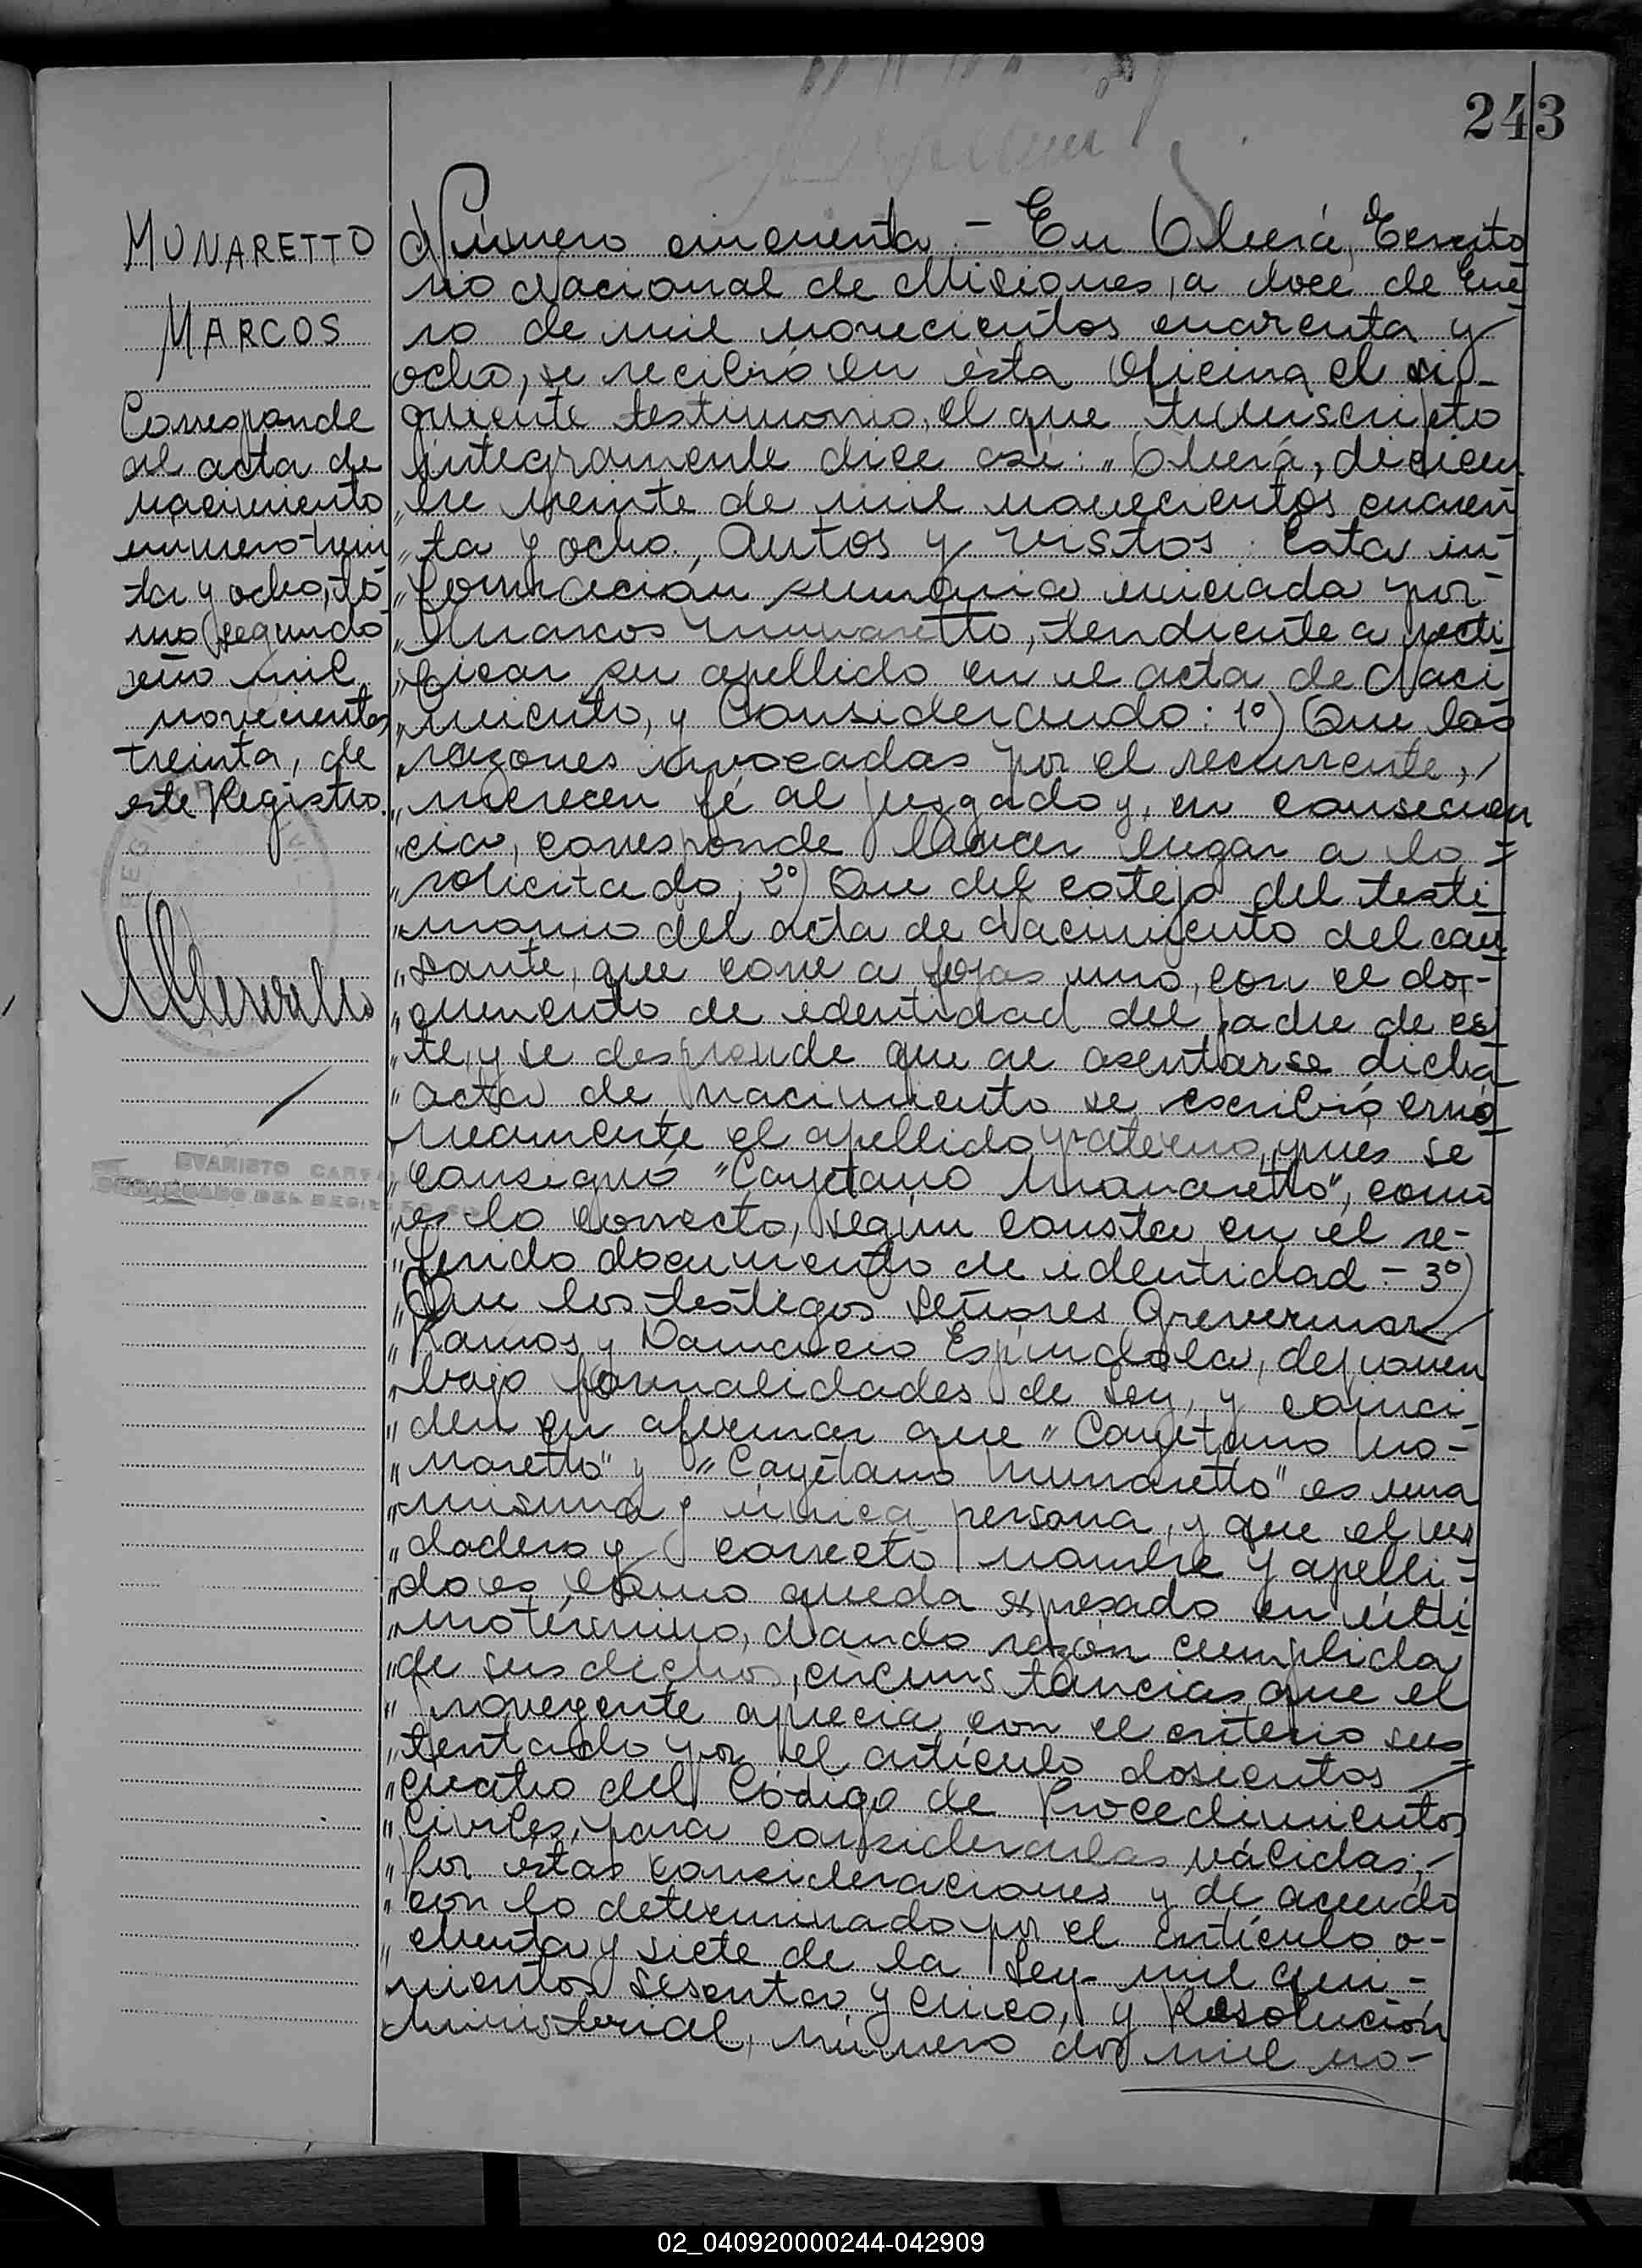 243
MUNARETTO
MARCOS
Corresponde
al acta de
nacimiento
numero trein
ta y ocho, tó
mo segundo
año mil
novecientos
treinta, de
este Registro.
EVARISTO CART
ENCARGADO DEL REGIS
Número cincuenta.- En Oberá, Territo
rio Nacional de Misiones, a doce de Ene
ro de mil novecientos cuarenta y
ocho, se recibió en ésta Oficina el si-
guiente testimonio, el que transcripto
integramente dice asi: "Oberá, diciem
"bre veinte de mil novecientos cuaren
"ta y ocho., Autos y Vistos: Esta in-
"formación sumaria iniciada por
"Marcos Munaretto, tendiente a recti
"ficar su apellido en el acta de Naci
"miento, y Considerando: 1º) Que las
"razones invocadas por el recurrente,
"merecen fé al juzgado y, en consecuen
"cia, corresponde hacer lugar a lo
"solicitado; 2º) Que del cotejo del testi
"monio del acta de Nacimiento del cau
"sante, que corre a fojas uno, con el do-
"cumento de identidad del padre de es
"te, y se desprende que al asentarse dicha
"acta de nacimiento se escribió erró
neamente el apellido paterno, pues se
"consignó "Cayetano Munaretto", como
"es lo correcto, según consta en el re-
"ferido documento de identidad - 3º)
"Que los testigos señores
"Ramos y Espíndola, deponen
"bajo formalidades de Ley, y coinci
"den en afirmar que "Cayetano Mo-
"naretto" y "Cayetano Munaretto" es una
"misma y única persona, y que el ver
"dadero y correcto nombre y apelli-
"do es como queda expresado en últi
"mo término, dando razón cumplida
"de sus dichos, circunstancias que el
"proveyente aprecia con el criterio sus
"tentado por el artículo dosientos
"cuatro del Código de Procedimientos
"Civiles, para considerarlas válidas;
"Por estas consideraciones y de acuerdo
"con lo determinado por el artículo o-
"chenta y siete de la Ley mil qui-
nientos sesenta y cinco, y Resolución
Ministerial, número dos mil no-
02_040920000244-042909